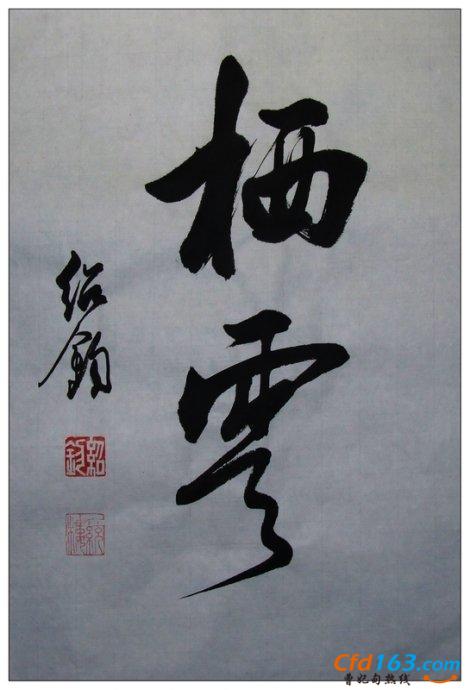 栖雲
绍钧
Cfd163.com
曹妃甸热线